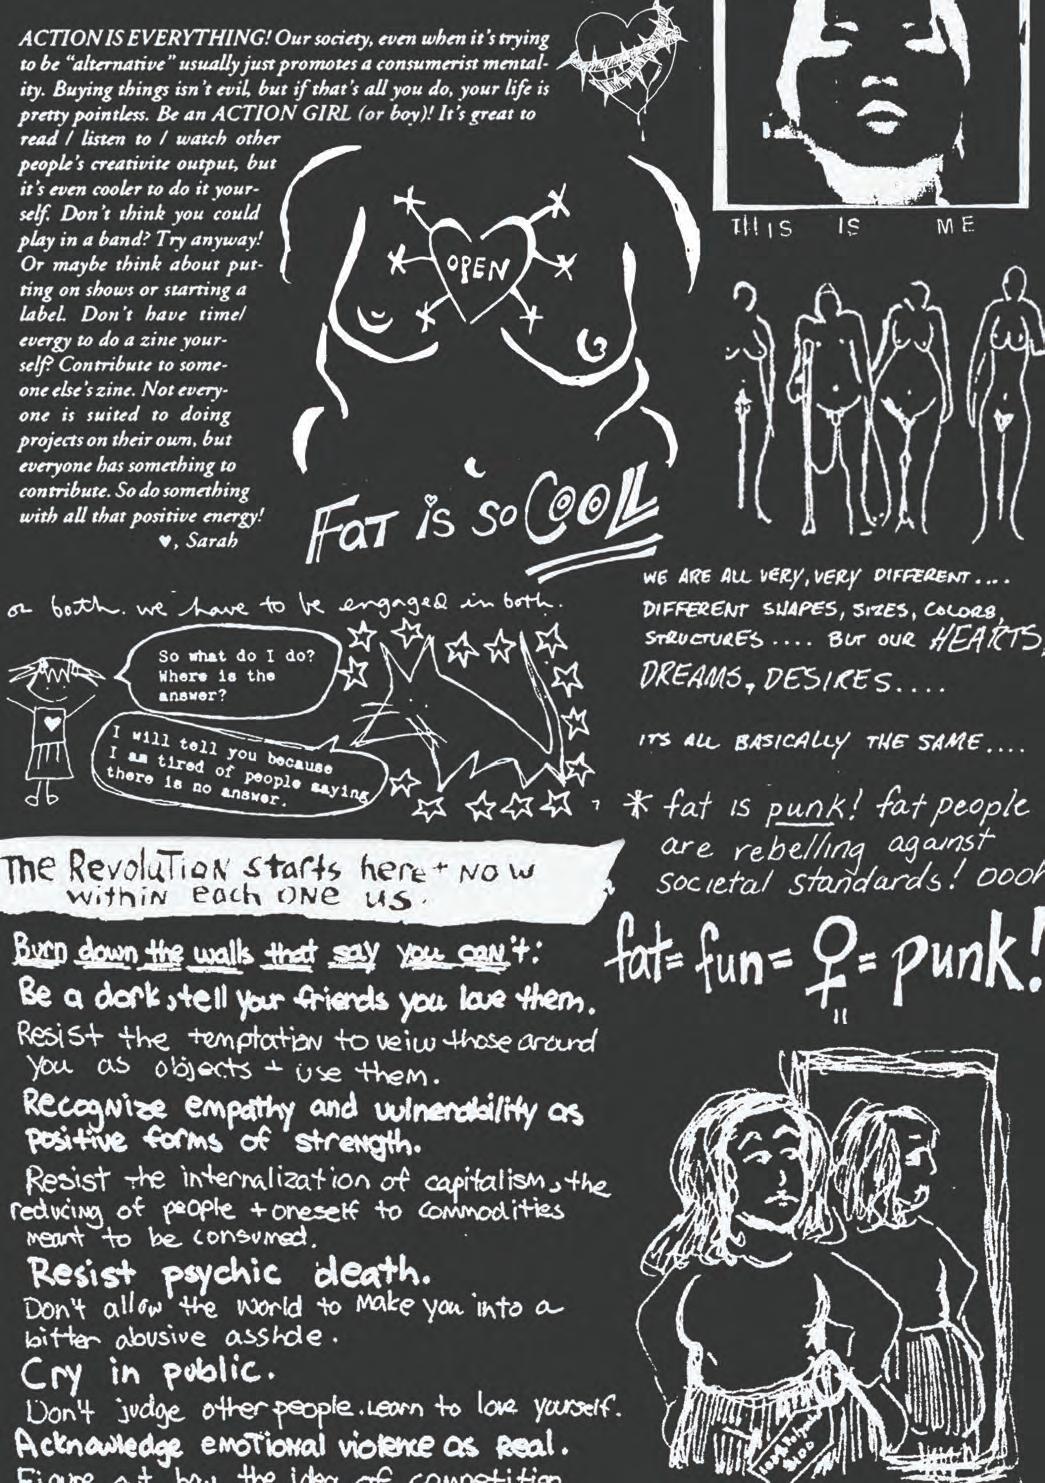 ACTION IS EVERYTHING! Our society, even when it's trying
to be "alternative" usually just promotes a consumerist mental-
ity. Buying things isn't evil, but if that's all you do, your life is
pretty pointless. Be an ACTION GIRL (or boy)! It's great to
read / listen to / watch other
people's creativite output, but
it's even cooler to do it your-
self. Don't think you could
play in a band? Try anyway!
Or maybe think about put-
ting on shows or starting a
label. Don't have time/
evergy to do a zine your-
self? Contribute to some-
one else's zine. Not every-
one is suited to doing
projects on their own, but
everyone has something to
contribute. So do something
with all that positive energy!
♥, Sarah
OPEN
FAT is so COOLL
THIS IS ME
WE ARE ALL VERY, VERY DIFFERENT....
DIFFERENT SHAPES, SIZES, COLORS,
STRUCTURES.... BUT OUR HEARTS,
DREAMS, DESIRES....
ITS ALL BASICALLY THE SAME....
or both. we have to be engaged in both.
So what do I do?
Where is the
answer?
I will tell you because
I am tired of people saying
there is no answer.
* fat is punk! fat people
are rebelling against
societal standards! oooh
fat = fun = ♀ = punk!
"
The Revolution starts here + NOW
within each ONE us.
Burn down the walls that say you can't:
Be a dork, tell your friends you love them.
Resist the temptation to veiw those around
you as objects + use them.
Recognize empathy and vulnerability as
positive forms of strength.
Resist the internalization of capitalism, the
reducing of people + oneself to commodities
meant to be consumed.
Resist psychic death.
Don't allow the world to make you into a
bitter abusive asshole.
Cry in public.
Don't judge other people. Learn to love yourself.
Acknowledge emotional violence as real.
Figure out how the idea of competition